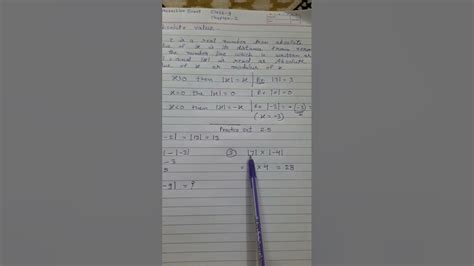 Maharashtra Board Class-9
Chapter-2
Absolute value
x is a real number then absolute
value of x is its distance from zero
the number line which is written as
|x| and |x| is read as Absolute
value of x or modulus of x
x>0 then |x| = x Ex |3| = 3
x=0 the |x| = 0 Ex |0| = 0
x<0 then |x| = -x Ex |-3| = -(-3)
(x = -3)
Practice set 2.5
|= |13| = 13
|-3| ③ |7| × |-4|
-3 = × 4 = 28
-9| = ?